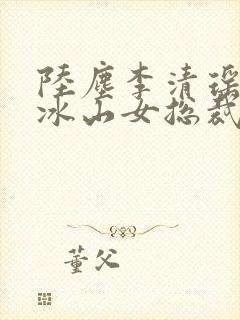 陸塵李清瑶
冰山女總裁
董父